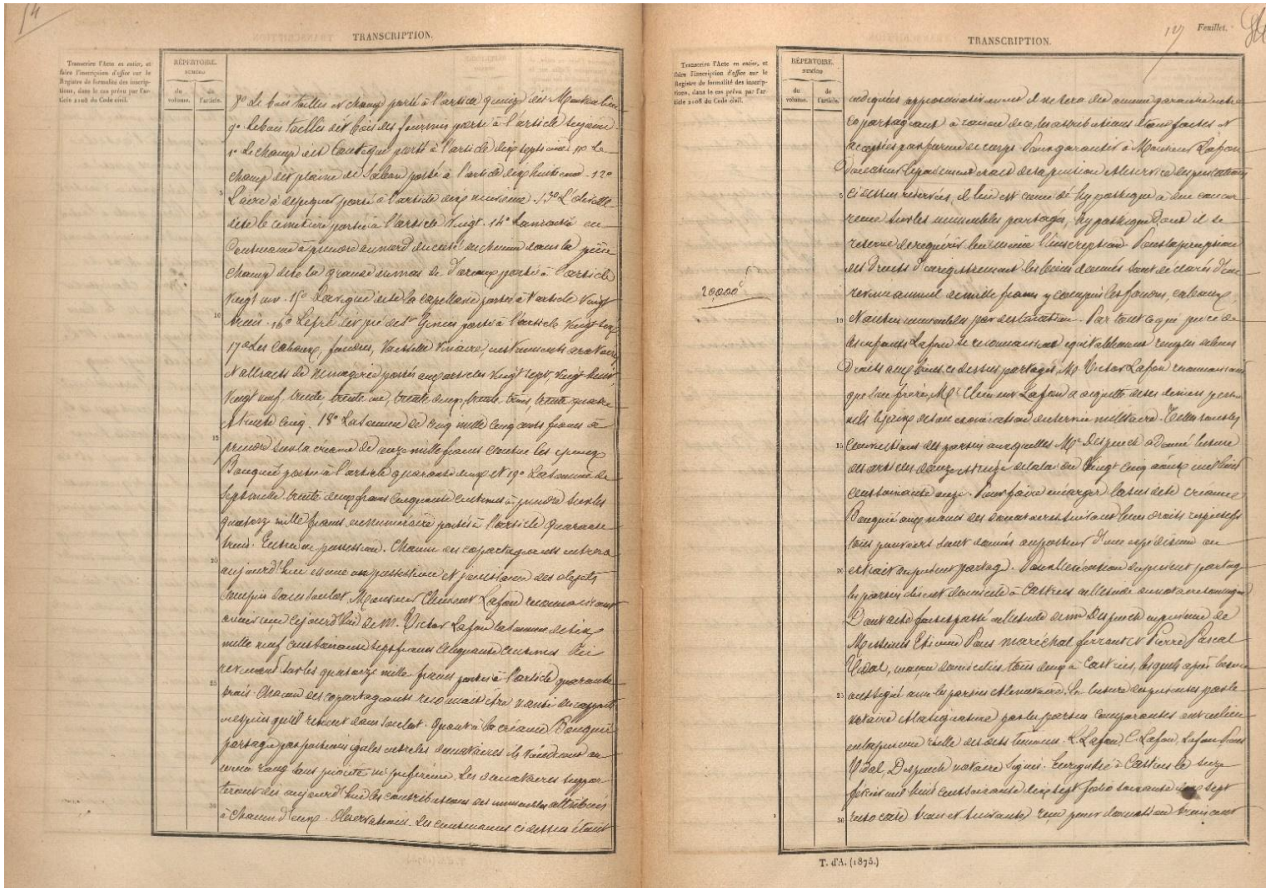 14
TRANSCRIPTION.
Transcrire l'Acte en entier, et
faire l'inscription d'office sur le
Registre de formalité des inscrip-
tions, dans le cas prévu par l'ar-
ticle 2108 du Code civil.
RÉPERTOIRE.
NUMÉRO
du volume.
de l'article.
8° Le bois taillis et champ porté à l'article quinze dit
9° Le bois taillis dit bois des fourmis porté à l'article
Le champ dit porté à l'article dix septième 11° Le
champ dit plaine de porté à l'article dix huitième 12°
L'aire à dépiquer porté à l'article dix neuvième 13° L'olivette
dite le cimetière portée à l'article vingt 14°
Contenance à prendre au nord du chemin dans la pièce
champ dite la grande portée à l'article
Vingt un 15° La vigne dite la capellanie portée à l'article vingt
trois 16° Le pré dit pré de portée à l'article vingt
17° Les cabaux, foudres, vaisselle vinaire, instruments aratoires
et effets de ménagerie portés aux articles vingt sept, vingt huit,
vingt neuf, trente, trente un, trente deux, trente trois, trente quatre
et trente cinq. 18° La somme de cinq mille cinq cents francs à
prendre sur la créance de onze mille francs contre les époux
Bouquié portée à l'article quarante deux et 19° La somme de
sept mille trente deux francs cinquante centimes à prendre sur les
quatorze mille francs en numéraire portés à l'article quarante
trois. Entrée en possession. Chacun des copartageants entrera
aujourd'hui même en possession et jouissance des objets
compris dans son lot. Monsieur Clément Lafon reconnaît
avoir reçu ce jourd'hui de M. Victor Lafon la somme de six
mille neuf cent soixante sept francs cinquante centimes lui
revenant sur les quatorze mille francs portés à l'article quarante
trois. Chacun des copartageants reconnaît être nanti des
espèces qu'il reçoit dans son lot. Quant à la créance Bouquié
partagée par portions égales entre les donataires ils viendront au
même rang sans priorité ni préférence. Les donataires suppor-
teront dès aujourd'hui les contributions des immeubles attribués
à chacun d'eux. Observations. Les contenances ci dessus étant
127
Feuillet.
TRANSCRIPTION.
Transcrire l'Acte en entier, et
faire l'inscription d'office sur le
Registre de formalité des inscrip-
tions, dans le cas prévu par l'ar-
ticle 2108 du Code civil.
RÉPERTOIRE.
NUMÉRO
du volume.
de l'article.
20000
indiquées approximativement il ne sera dû aucune garantie entre
copartageants à raison de ce, les attributions étant faites et
acceptées par forme de corps. Pour garantir à Monsieur Lafon
donateur le paiement exact de la pension et le service des prestations
ci dessus réservées, il lui est consenti hypothèque à due concur
rence sur les immeubles partagés, hypothèque dont il se
réserve de requérir lui même l'inscription. Pour la perception
des droits d'enregistrement les biens donnés sont déclarés d'un
revenu annuel de mille francs y compris les foudres, cabaux,
et autres immeubles par destination. Par tout ce qui précède
les enfants Lafon se reconnaissent équitablement remplis de leurs
droits aux biens ci dessus partagés, M. Victor Lafon reconnaissant
que son frère, M. Clément Lafon a acquitté de ses deniers person
nels le prix de son exonération du service militaire. Telles sont les
conventions des parties auxquelles Me Despuech a donné lecture
des articles douze et treize de la loi du vingt cinq août mil huit
cent soixante onze. Pour faire émarger la susdite créance
Bouquié aux noms des donataires suivant leurs droits respectifs
tous pouvoirs sont donnés au porteur d'une expédition ou
extrait du présent partage. Pour l'exécution du présent partage
les parties élisent domicile à Castries en l'étude du notaire soussigné
Dont acte fait et passé en l'étude de Me Despuech en présence de
Messieurs Etienne Pons maréchal ferrant et Pierre Pascal
Vidal, maçon domiciliés tous deux à Castries, lesquels après lecture
ont signé avec les parties et le notaire. La lecture des présentes par le
notaire et la signature par les parties comparantes ont eu lieu
en la présence réelle des dits témoins. L. Lafon, C. Lafon, Lafon, Pons
Vidal, Despuech notaire signés. Enregistré à Castries le seize
février mil huit cent soixante dix sept folio soixante dix sept
recto case trois et suivantes reçu pour donation trois cent
5
10
15
20
25
30
T. d'A. (1875.)